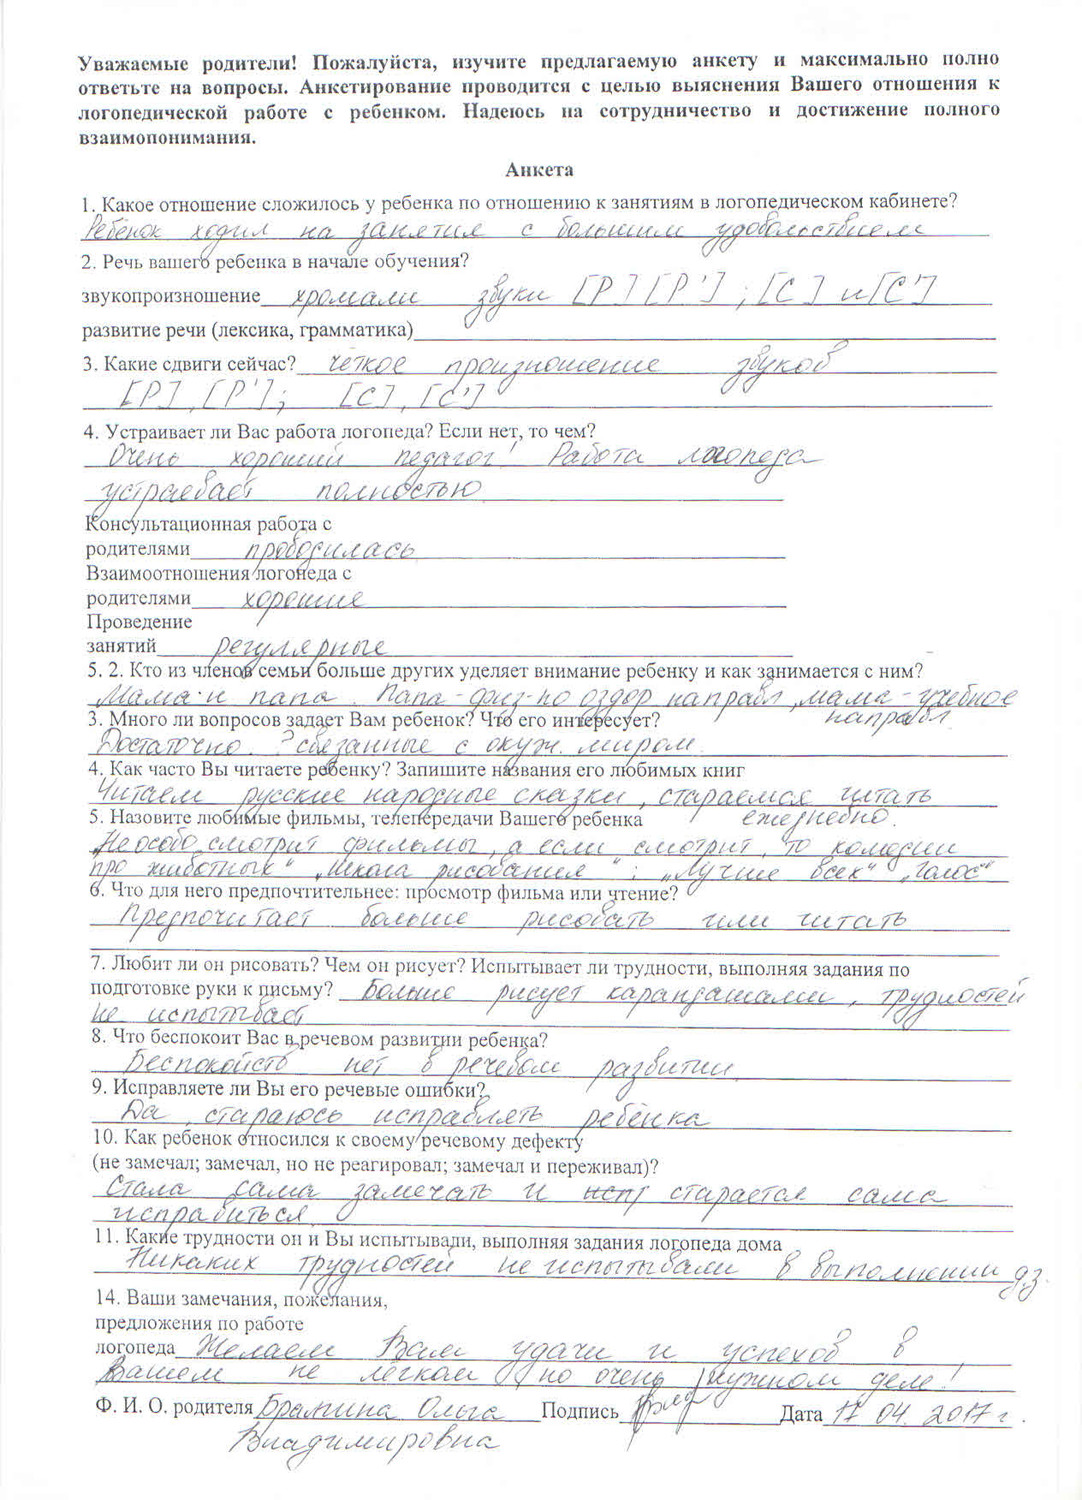 Уважаемые родители! Пожалуйста, изучите предлагаемую анкету и максимально полно
ответьте на вопросы. Анкетирование проводится с целью выяснения Вашего отношения к
логопедической работе с ребенком. Надеюсь на сотрудничество и достижение полного
взаимопонимания.
Анкета
1. Какое отношение сложилось у ребенка по отношению к занятиям в логопедическом кабинете?
Ребёнок ходил на занятия с большим удовольствием
2. Речь вашего ребенка в начале обучения?
звукопроизношение хромали звуки [Р] [Р']; [С] и [С']
развитие речи (лексика, грамматика)
3. Какие сдвиги сейчас? чёткое произношение звуков
[Р], [Р']; [С], [С']
4. Устраивает ли Вас работа логопеда? Если нет, то чем?
Очень хороший педагог! Работа логопеда
устраевает полностью
Консультационная работа с
родителями проводилась
Взаимоотношения логопеда с
родителями хорошие
Проведение
занятий регулярные
5. 2. Кто из членов семьи больше других уделяет внимание ребенку и как занимается с ним?
Мама и папа. Папа - физ-но оздор направл, мама - учебное
направл
3. Много ли вопросов задает Вам ребенок? Что его интересует?
Достаточно. ? связанные с окуж. миром.
4. Как часто Вы читаете ребенку? Запишите названия его любимых книг
Читаем русские народные сказки, стараемся читать
ежедневно.
5. Назовите любимые фильмы, телепередачи Вашего ребенка
Не особо смотрит фильмы, а если смотрит, то комедии
про животных" „Школа рисования"; „Лучше всех" „Голос"
6. Что для него предпочтительнее: просмотр фильма или чтение?
Предпочитает больше рисовать или читать
7. Любит ли он рисовать? Чем он рисует? Испытывает ли трудности, выполняя задания по
подготовке руки к письму? Больше рисует карандашами, трудностей
не испытывает
8. Что беспокоит Вас в речевом развитии ребенка?
Беспокойств нет в речевом развитии
9. Исправляете ли Вы его речевые ошибки?
Да, стараюсь исправлять ребёнка
10. Как ребенок относился к своему речевому дефекту
(не замечал; замечал, но не реагировал; замечал и переживал)?
Стала сама замечать и старается сама
исправиться.
11. Какие трудности он и Вы испытывали, выполняя задания логопеда дома
Никаких трудностей не испытывали в выполнении д.з.
14. Ваши замечания, пожелания,
предложения по работе
логопеда Желаем Вам удачи и успехов в
Вашем не лёгком, но очень нужном деле!
Ф. И. О. родителя Ольга Подпись Дата 17 04. 2017 г.
Владимировна